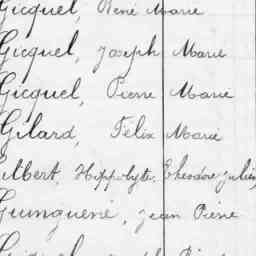 Gicquel, René Marie
Gicquel, Joseph Marie
Gicquel, Pierre Marie
Gilard, Félix Marie
Gilbert, Hippolyte, Théodore Julien
Guinguené, Jean Pierre